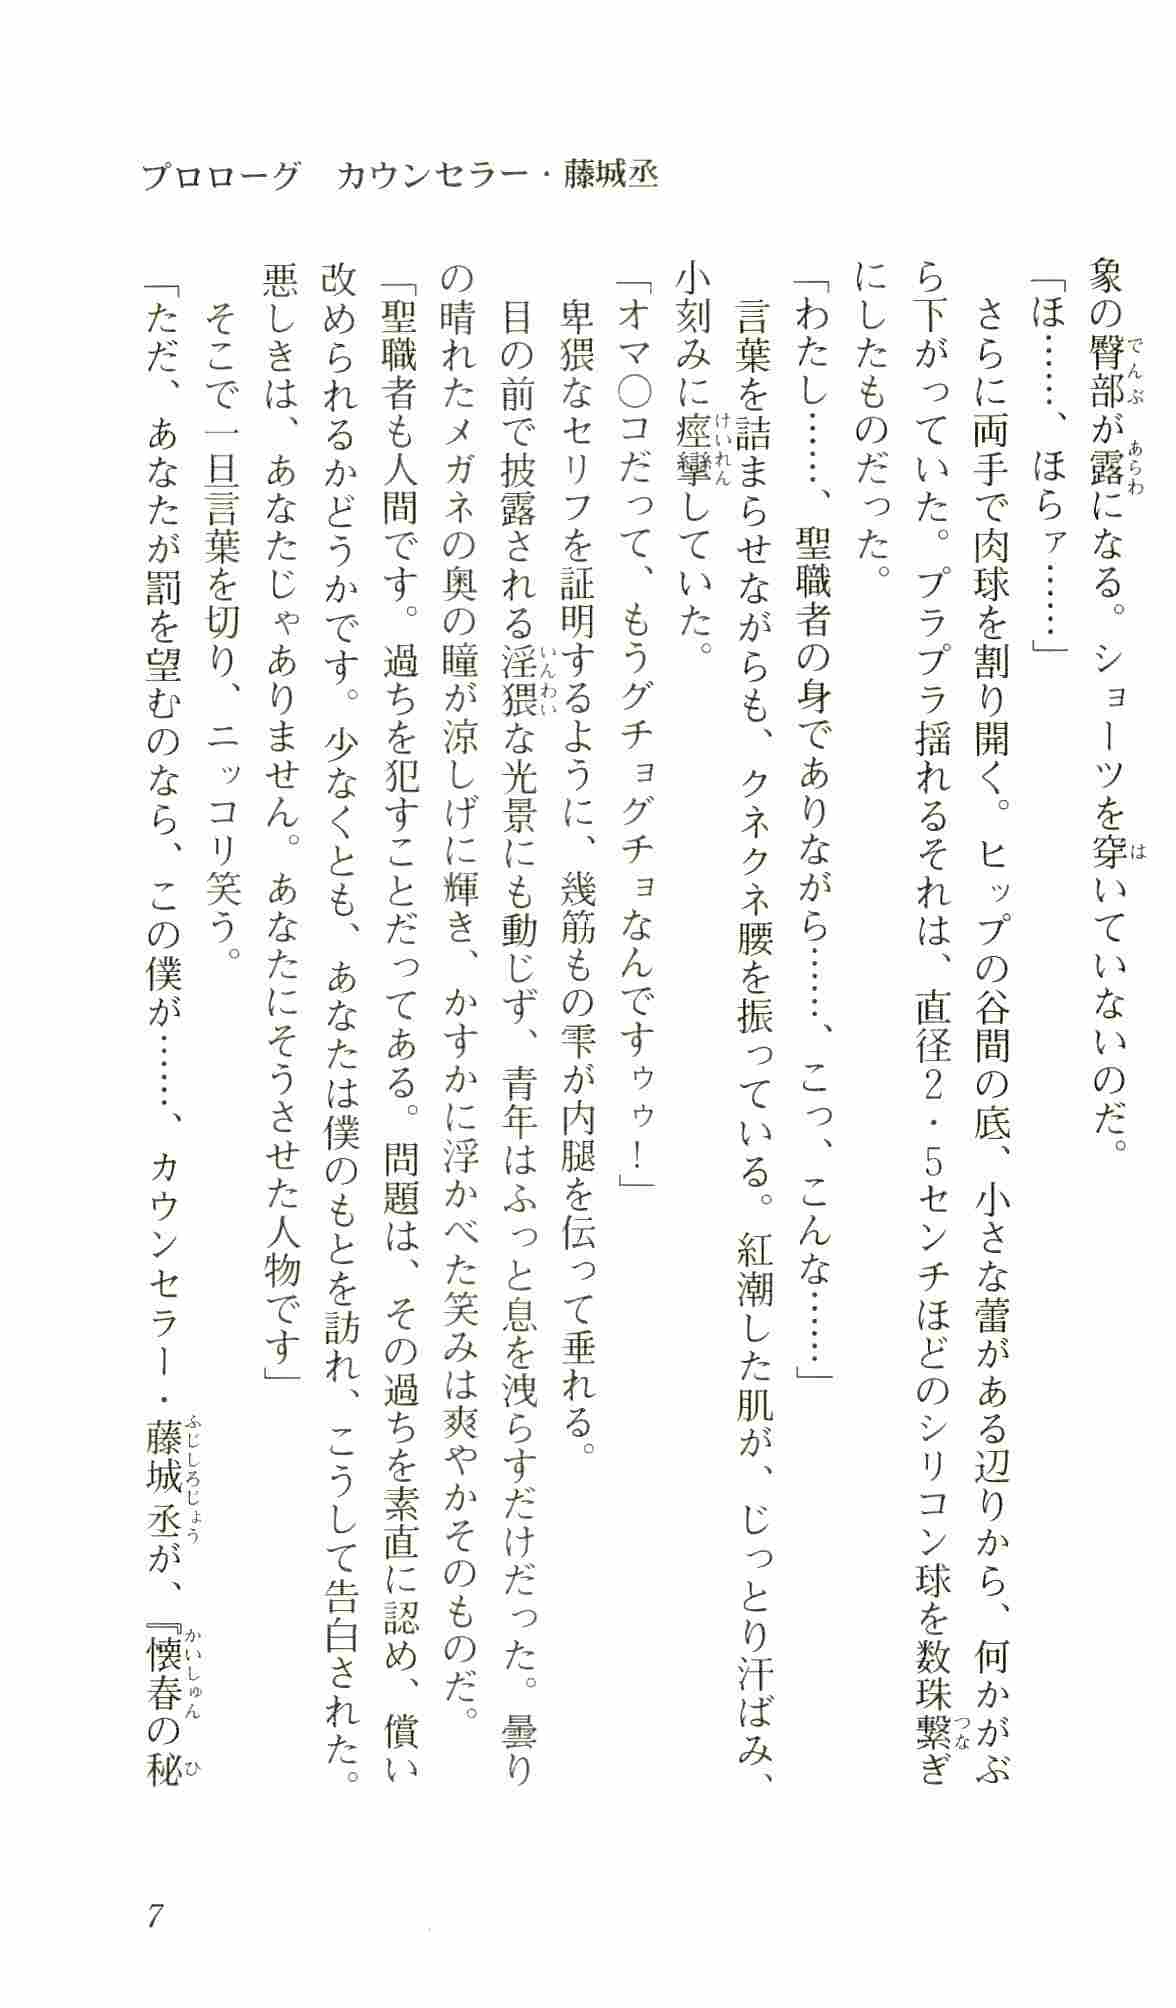 プロローグ　カウンセラー・藤城丞
象の臀部が露になる。ショーツを穿いていないのだ。
「ほ……、ほらァ……」
さらに両手で肉球を割り開く。ヒップの谷間の底、小さな蕾がある辺りから、何かがぶ
ら下がっていた。プラプラ揺れるそれは、直径2・5センチほどのシリコン球を数珠繋ぎ
にしたものだった。
「わたし……、聖職者の身でありながら……、こっ、こんな……」
言葉を詰まらせながらも、クネクネ腰を振っている。紅潮した肌が、じっとり汗ばみ、
小刻みに痙攣していた。
「オマ〇コだって、もうグチョグチョなんですゥゥ！」
卑猥なセリフを証明するように、幾筋もの雫が内腿を伝って垂れる。
目の前で披露される淫猥な光景にも動じず、青年はふっと息を洩らすだけだった。曇り
の晴れたメガネの奥の瞳が涼しげに輝き、かすかに浮かべた笑みは爽やかそのものだ。
「聖職者も人間です。過ちを犯すことだってある。問題は、その過ちを素直に認め、償い
改められるかどうかです。少なくとも、あなたは僕のもとを訪れ、こうして告白された。
悪しきは、あなたじゃありません。あなたにそうさせた人物です」
そこで一旦言葉を切り、ニッコリ笑う。
「ただ、あなたが罰を望むのなら、この僕が……、カウンセラー・藤城丞が、『懐春の秘
7